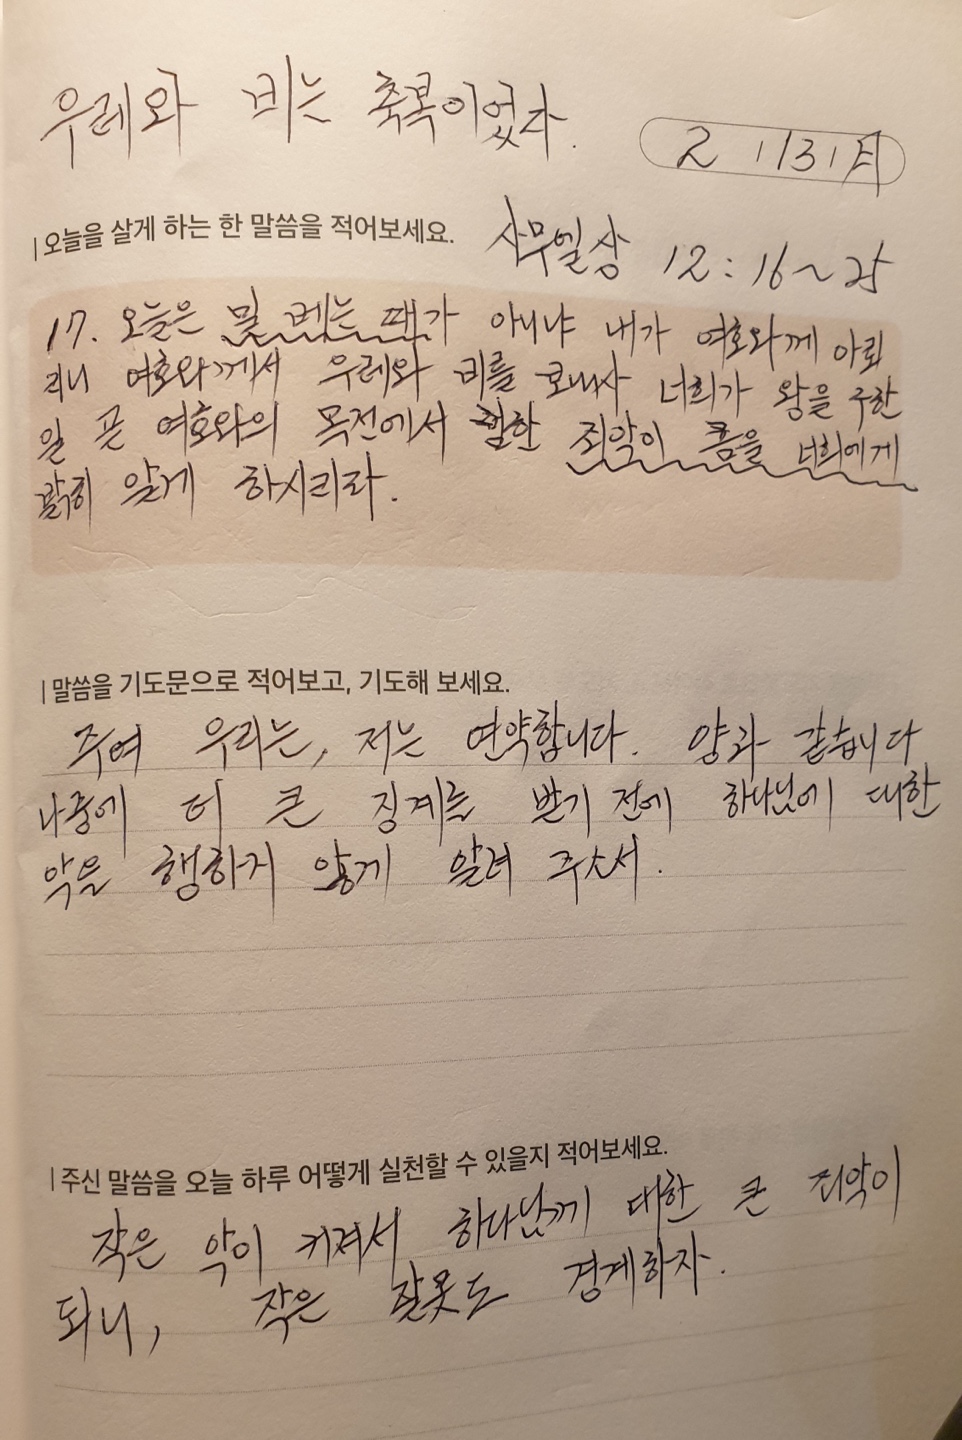 우레와 비는 축복이었다.
2 / 13 / 日
| 오늘을 살게 하는 한 말씀을 적어보세요.
사무엘상 12:16~25
17. 오늘은 밀 베는 때가 아니냐 내가 여호와께 아뢰
리니 여호와께서 우레와 비를 보내사 너희가 왕을 구한
일 곧 여호와의 목전에서 범한 죄악이 큼을 너희에게
밝히 알게 하시리라.
| 말씀을 기도문으로 적어보고, 기도해 보세요.
주여 우리는, 저는 연약합니다. 양과 같습니다
나중에 더 큰 징계를 받기 전에 하나님에 대한
악을 행하지 않게 알려 주소서.
| 주신 말씀을 오늘 하루 어떻게 실천할 수 있을지 적어보세요.
작은 악이 커져서 하나님께 대한 큰 죄악이
되니, 작은 잘못도 경계하자.